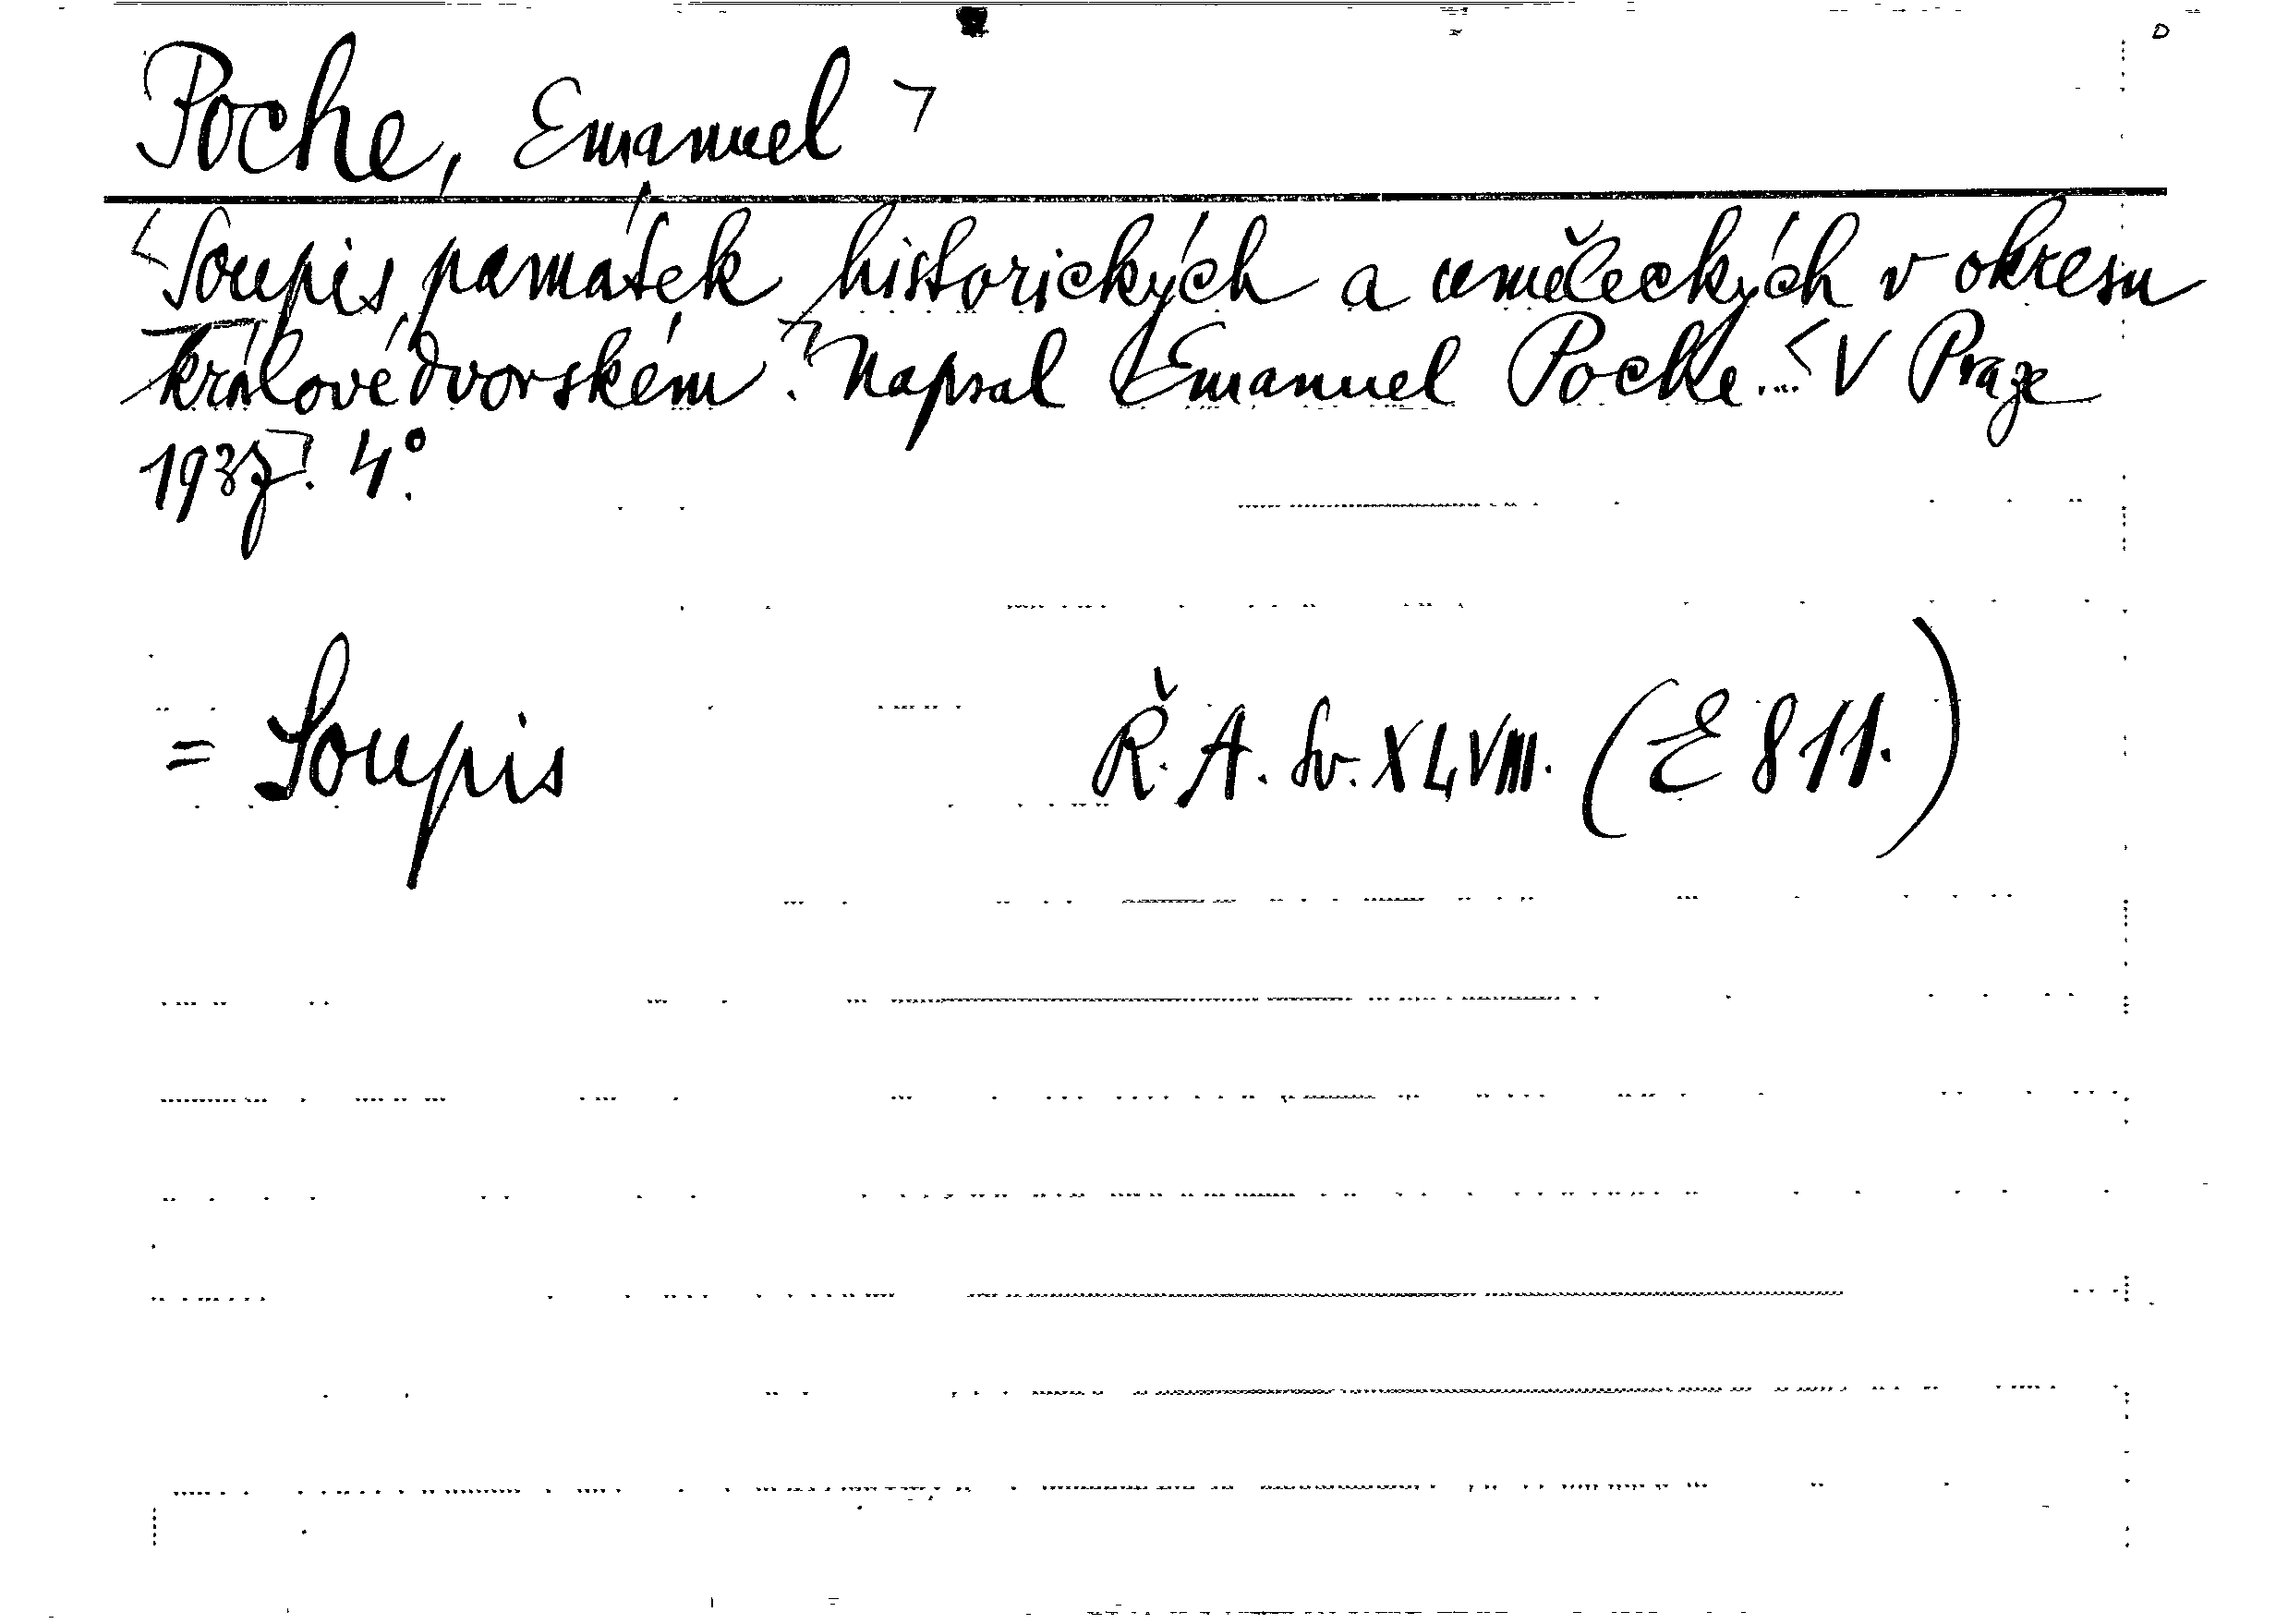 Poche, Emanuel
Soupis památek historických a uměleckých v okresu
královédvorském. Napsal Emanuel Poche... V Praze
1937. 4°.
= Soupis Ř. A. Sv. XLVIII. (E 811.)